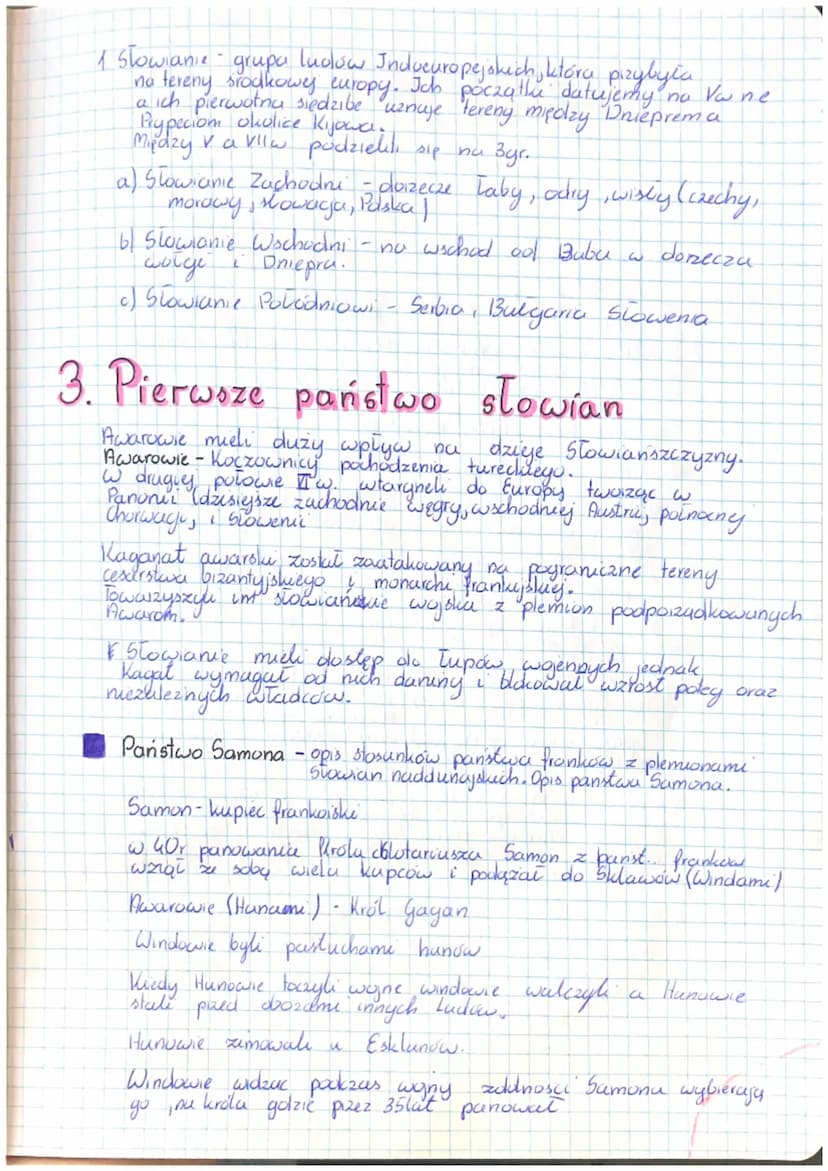 1 Słowianie - grupa ludów Indoeuropejskich, która przybyła
na tereny środkowej europy. Ich początki datujemy na Vw ne
a ich pierwotną siedzibe uznaje tereny między Dnieprem a
Prypeciom okolice Kijowa.
Między V a VII w podzielili się na 3gr.
a) Słowianie Zachodni - dorzecze Łaby, odry, wisły (czechy,
morawy, słowacja, Polska)
b) Słowianie Wschodni - na wschod od Bubu w dorzeczu
wołgi i Dniepru.
c) Słowianie Połódniowi - Serbia, Bułgaria Słowenia
3. Pierwsze państwo słowian
Awarowie mieli duży wpływ na dzieje Słowiańszczyzny.
Awarowie - Koczownicy pochodzenia tureckiego.
w drugiej połowie VI w. wtargneli do Europy tworząc w
Panonii (dzisiejsze zachodnie węgry, wschodniej Austrii, północnej
Chorwacji, i Słowenii
Kaganat awarski został zaatakowany na pograniczne tereny
cesarstwa bizantyjskiego i monarchi frankijskiej.
Towarzyszyli im słowiańskie wojska z plemion podporządkowanych
Awarom.
Słowianie mieli dostęp do łupów wojennych jednak
Kagat wymagał od nich daniny i blokował wzrost potęg oraz
niezależnych władców.
Państwo Samona - opis stosunków państwa franków z plemionami
słowian naddunajskich. Opis państwa Samona.
Samon - kupiec frankoiski
w 40r panowania Króla chlotariusza Samon z państ.. franków
wziął ze sobą wielu kupców i podążał do Sklawów (Windami)
Awarowie (Hunami) - Król Gagan
Windowie byli pastuchami hunów
Kiedy Hunowie toczyli wojne windowie walczyli a Hunowie
stali przed obozami innych Ludów.
Hunowie zimowali u Esklanów.
Windowie widzac podczas wojny zdolności Samona wybierają
go, na króla gdzie przez 35lat panował